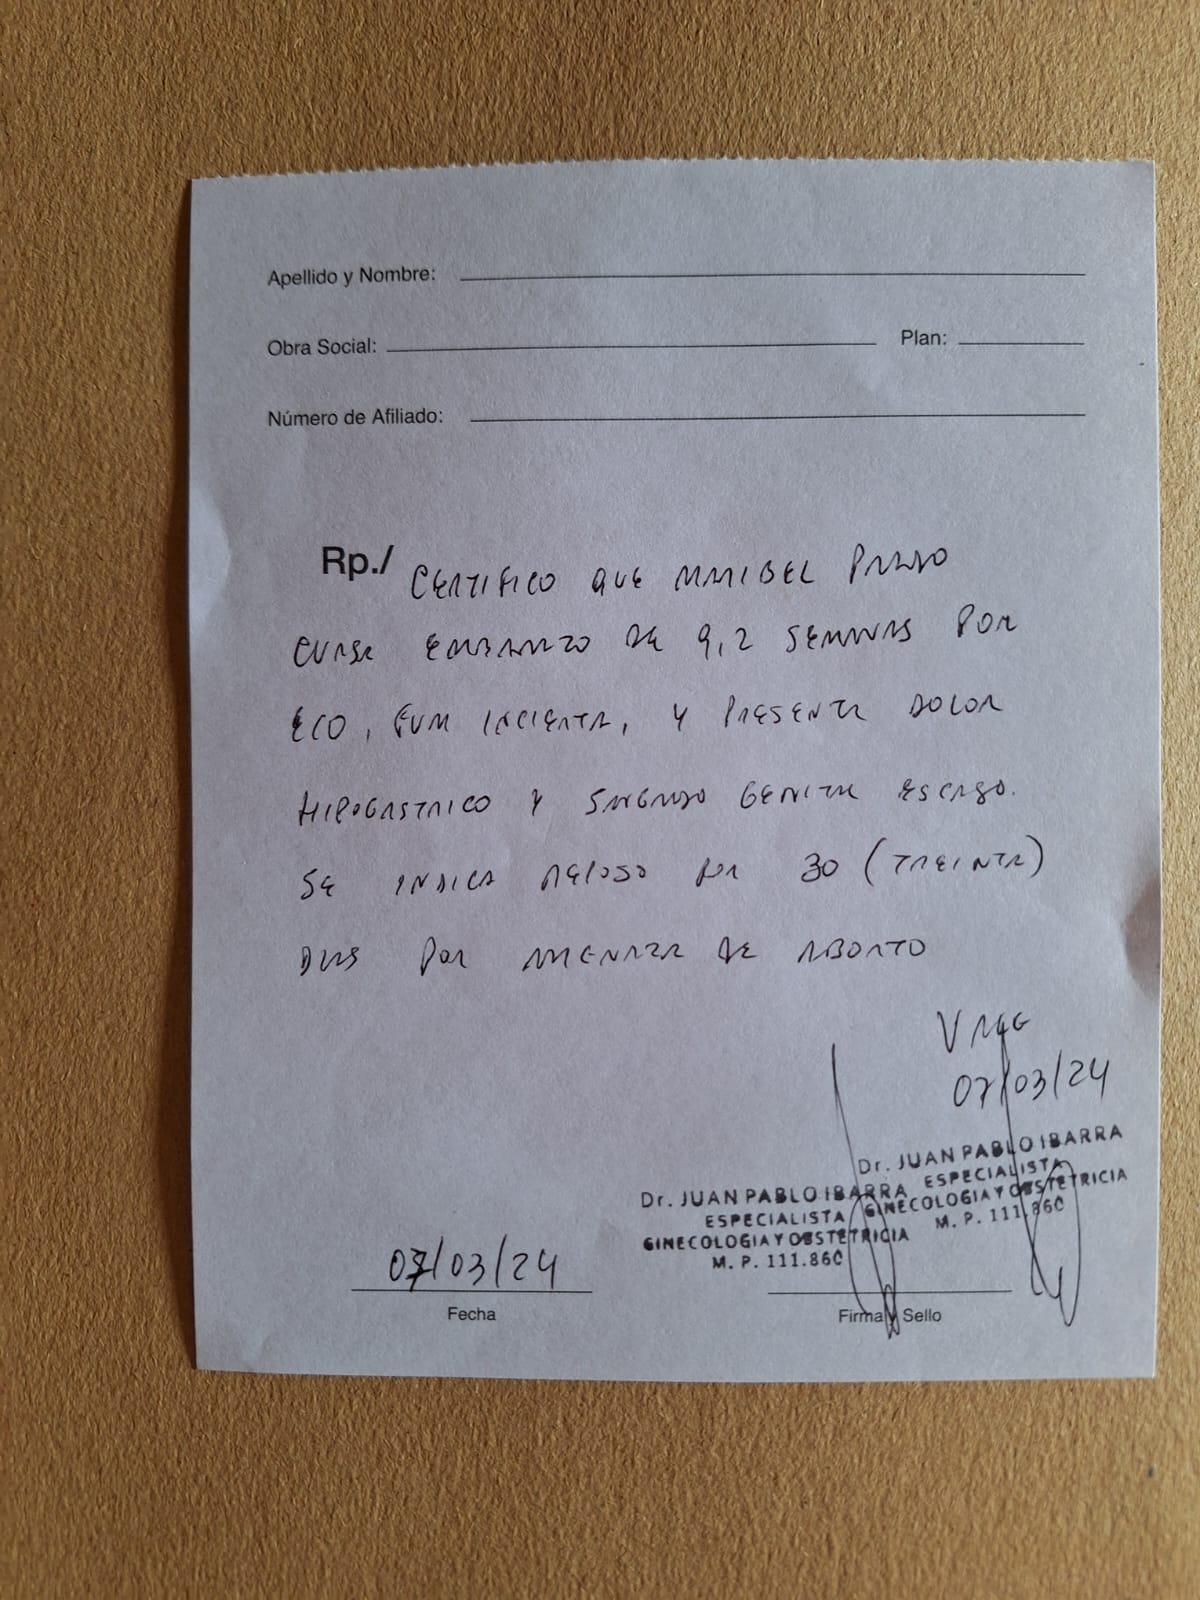 Apellido y Nombre:
Obra Social: Plan:
Número de Afiliado:
Rp./ CERTIFICO QUE MARIBEL
CURSA EMBARAZO DE 9,2 SEMANAS POR
ECO, FUM INCIERTA, Y PRESENTA DOLOR
HIPOGASTRICO Y SANGRADO GENITAL ESCASO.
SE INDICA REPOSO POR 30 (TREINTA)
DIAS POR AMENAZA DE ABORTO
07/03/24
Dr. JUAN PABLO IBARRA
ESPECIALISTA
GINECOLOGIA Y OBSTETRICIA
M. P. 111.860
Dr. JUAN PABLO IBARRA
ESPECIALISTA
GINECOLOGIA Y OBSTETRICIA
M. P. 111.860
07/03/24
Fecha
Firma y Sello